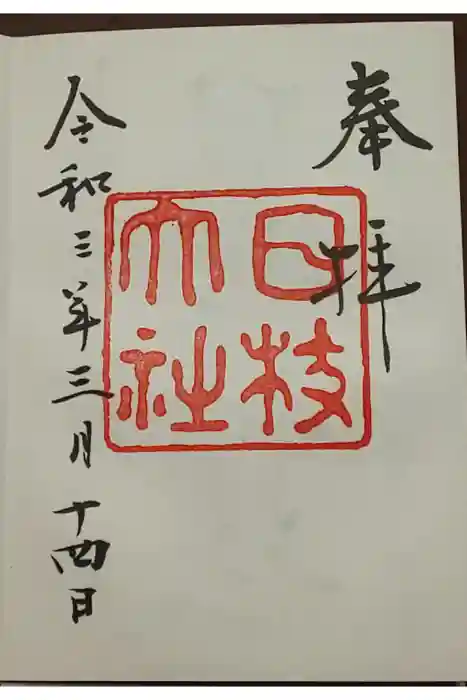 奉拝
日枝
大社
令和三年三月十四日